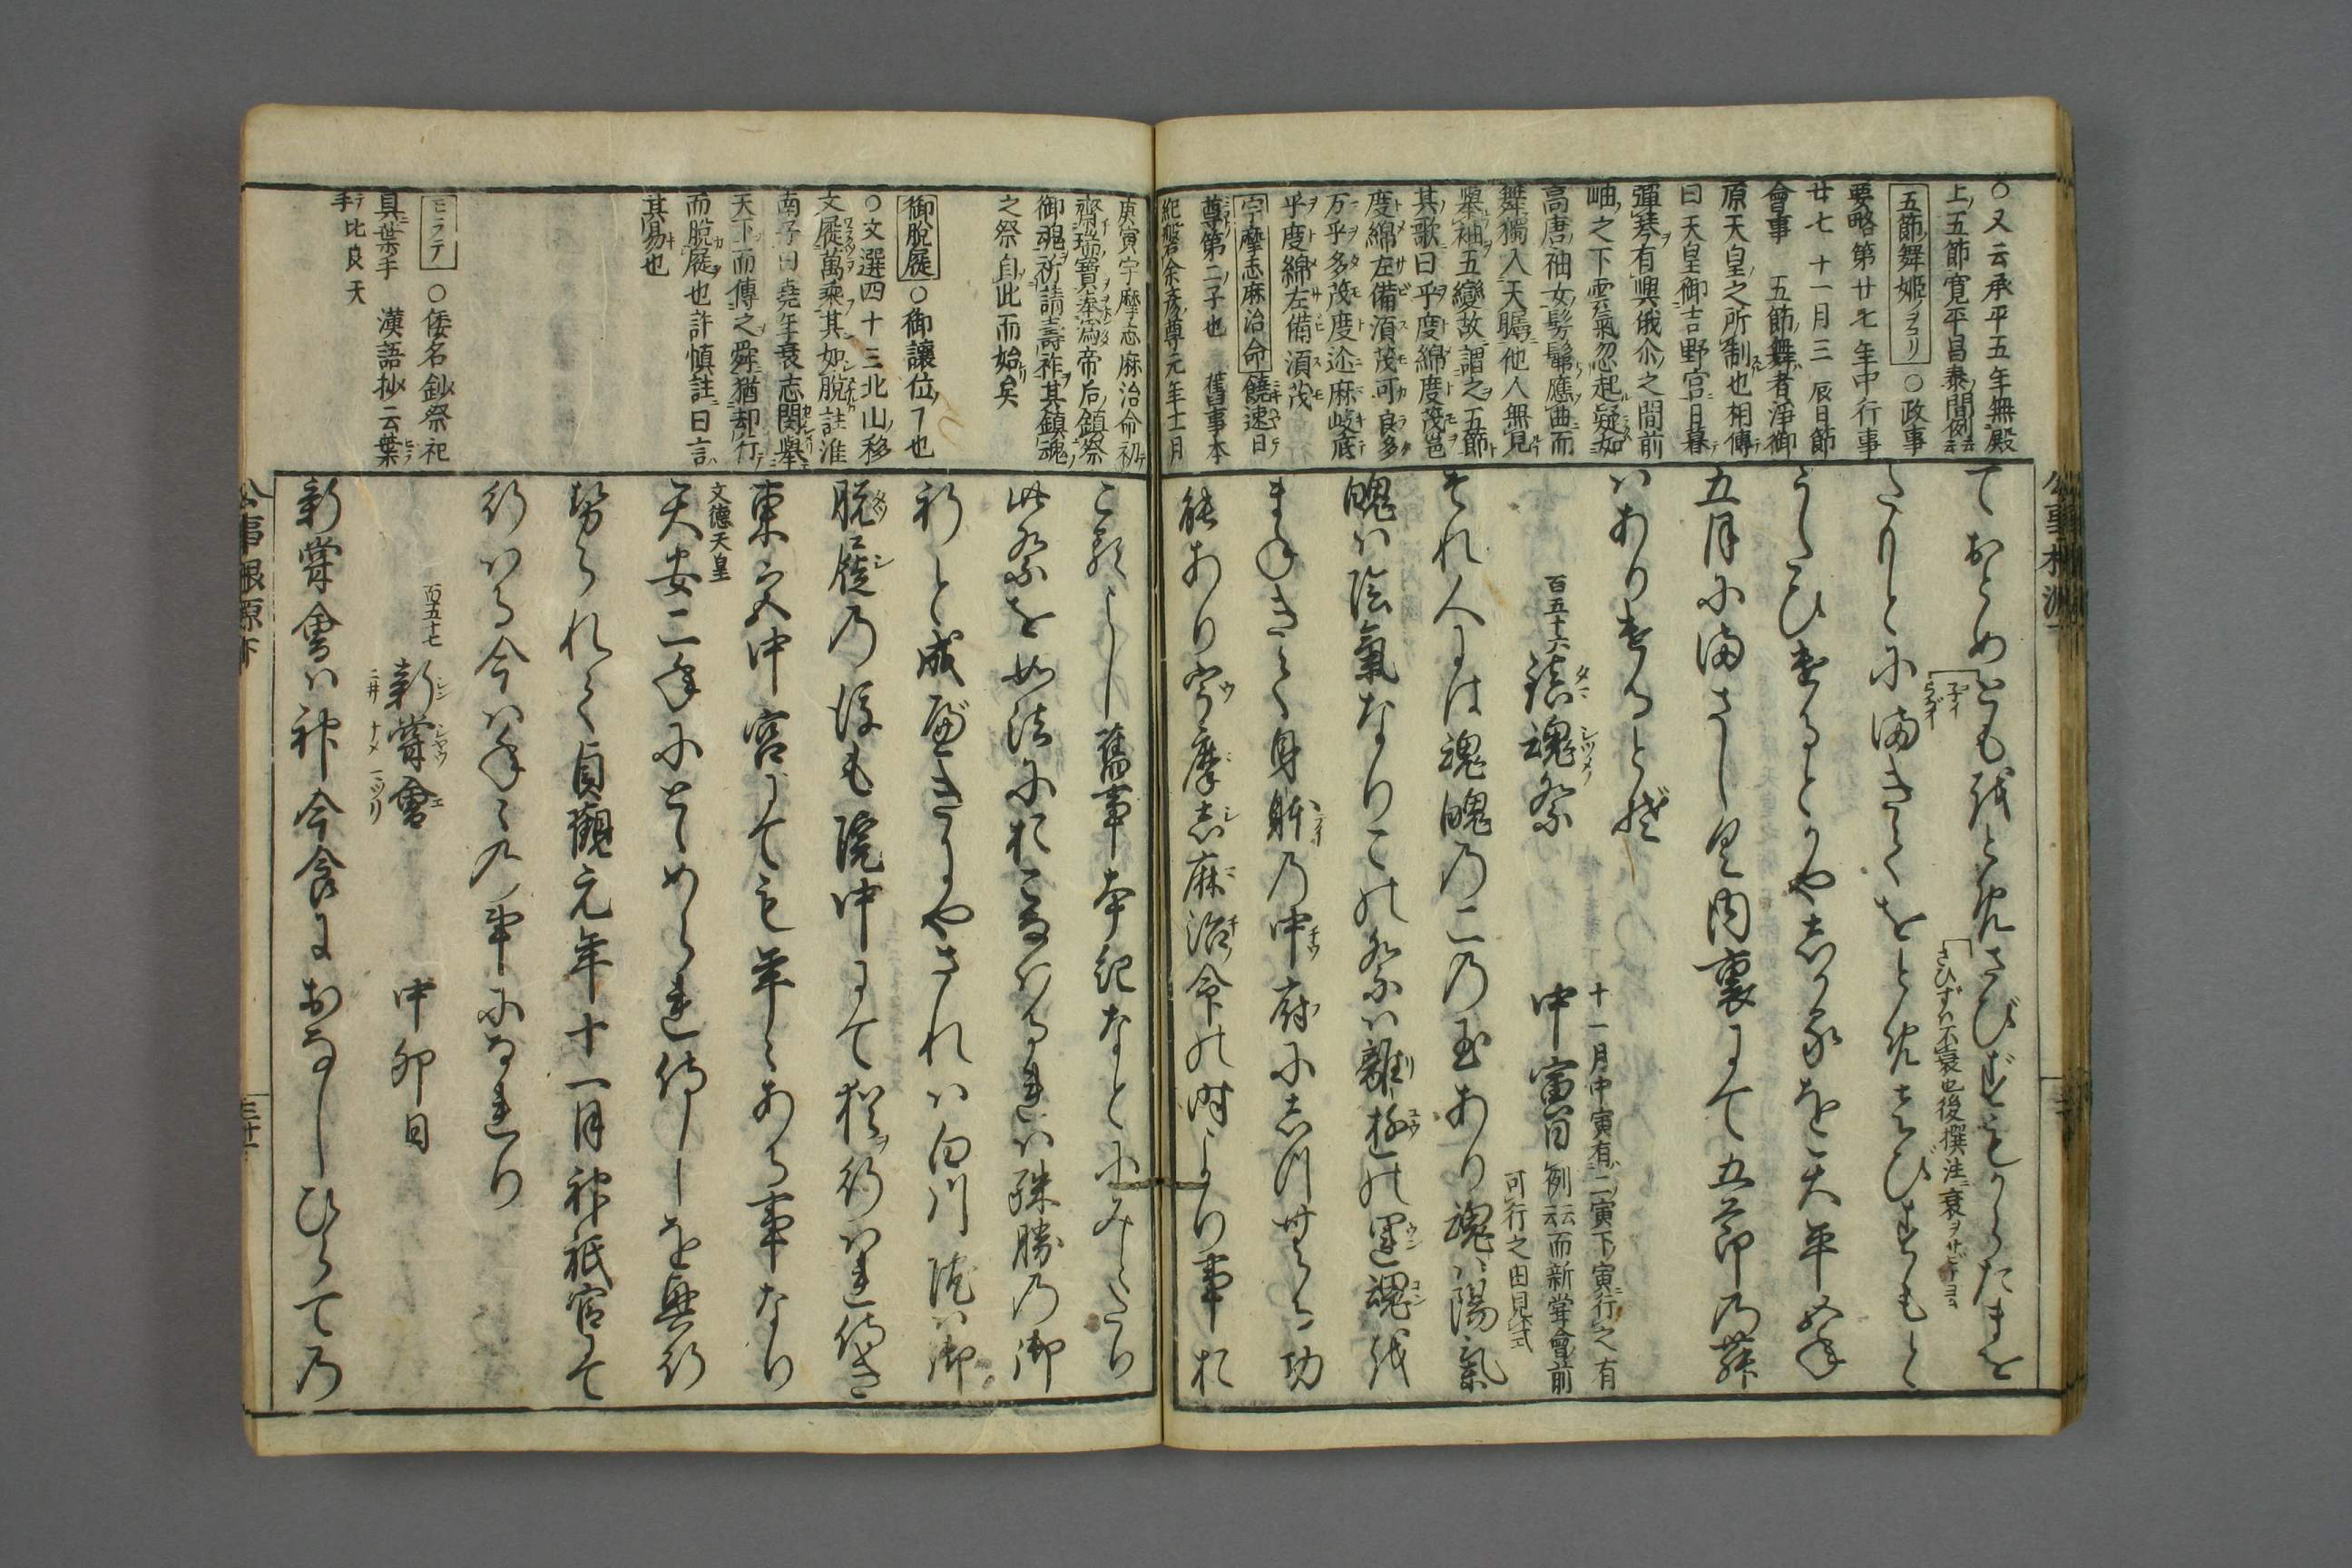 〇又云承平五年無殿
上五節寛平昌泰間例云云
五節舞姫ヲコリ 〇政事
要略第廿七年中行事
廿七 十一月三 辰日節
會事 五節舞者淨御
原天皇之所制也相傳
曰天皇御吉野宮日暮
彈琴有興俄尒之間前
岫之下雲氣忽起疑如
高唐神女髣髴應曲而
舞獨入天矚他人無見
擧袖五變故謂之五節
其歌曰乎度綿度茂邕
度綿左備湏茂可良多
万乎多茂度迩麻岐底
乎度綿左備湏茂
宇摩志麻治命 饒速日
尊第二子也 舊事本
紀磐余彦尊元年十一月
ておとめども我とめさびすもからたまを
たりとにまきてをとめさびすもと
うたひけるとかやしかるを天平五年
五月にまさしく内裏にて五節の舞
はありけるとぞ
百五十六 鎮魂祭 中寅日
十一月中寅有二寅下寅行之有
例云云而新嘗會前
可行之由見式
それ人には魂魄の二の玉あり魂は陽氣
魄は陰氣なりこの祭は離遊の運魂を
まねきて身躰の中府にしつむる功
能あり宇摩志麻治命の時より事お
庚寅宇摩志麻治命初
齋瑞寶奉為帝后鎮祭
御魂祈請壽祚其鎮魂
之祭自此而始矣
御脱屣 〇御讓位ノ叓也
〇文選四十三北山移
文屣萬乘其如脱註淮
南子曰堯年衰志閔擧
天下而傳之舜猶却行
而脱屣也許慎註曰言
其易也
ヒラテ 〇倭名鈔祭祀
具葉手 漢語抄云葉
手比良天
これよし舊事本紀なとにみえたり
此祭を如法におこなはるれは殊勝の御
祈と成へきにやされは白川院は御
脱屣の後も院中にて猶行はれ侍き
東宮中宮にても年々ある事なり
文徳天皇
天安二年にとゝめられ侍しを興行
せられて貞觀元年十一月神祇官にて
行はる今は年々の事になれり
百五十七 新嘗會 中卯日
新嘗會は神今食におなしひらての